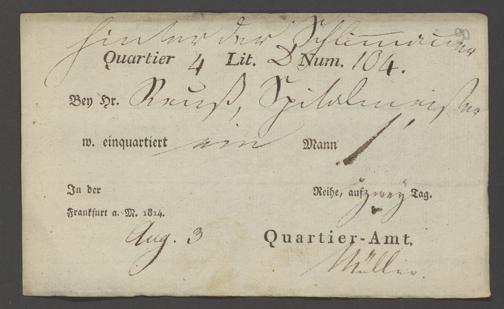 hinter der Schlimmauer
90
Quartier 4 Lit. D Num. 104.
Bey Hr. Reuß, Spitalmeister
w. einquartiert ein Mann 1
In der Reihe, auf zwey Tag.
Frankfurt a. M. 1814.
Aug. 3 Quartier-Amt.
Müller.